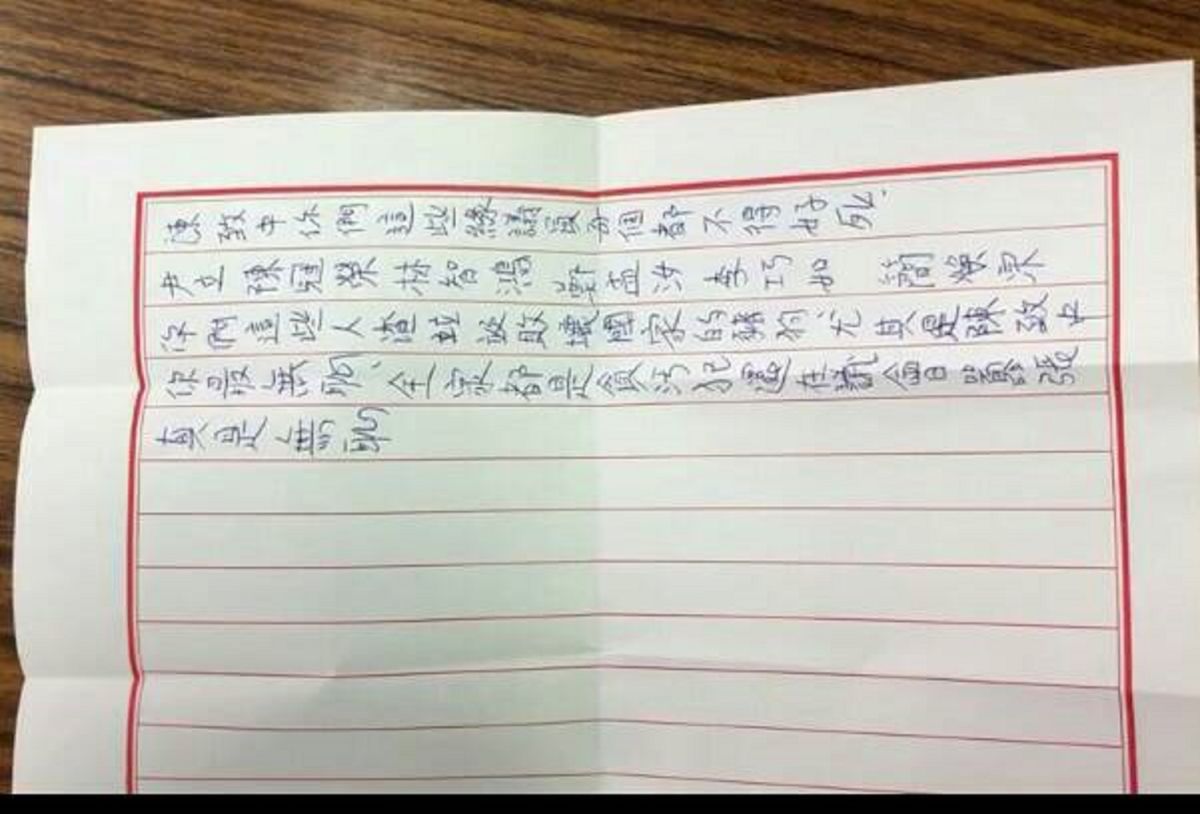 陳致中你們這些綠議員每個都不得好死.
尹立 陳冠榮 林智鴻 鄭孟洳 李巧如 簡煥宗
你們這些人渣垃圾敗壞國家的豬狗尤其是陳致中
你最無恥、全家都是貪污犯還在議會囂張
真是無恥